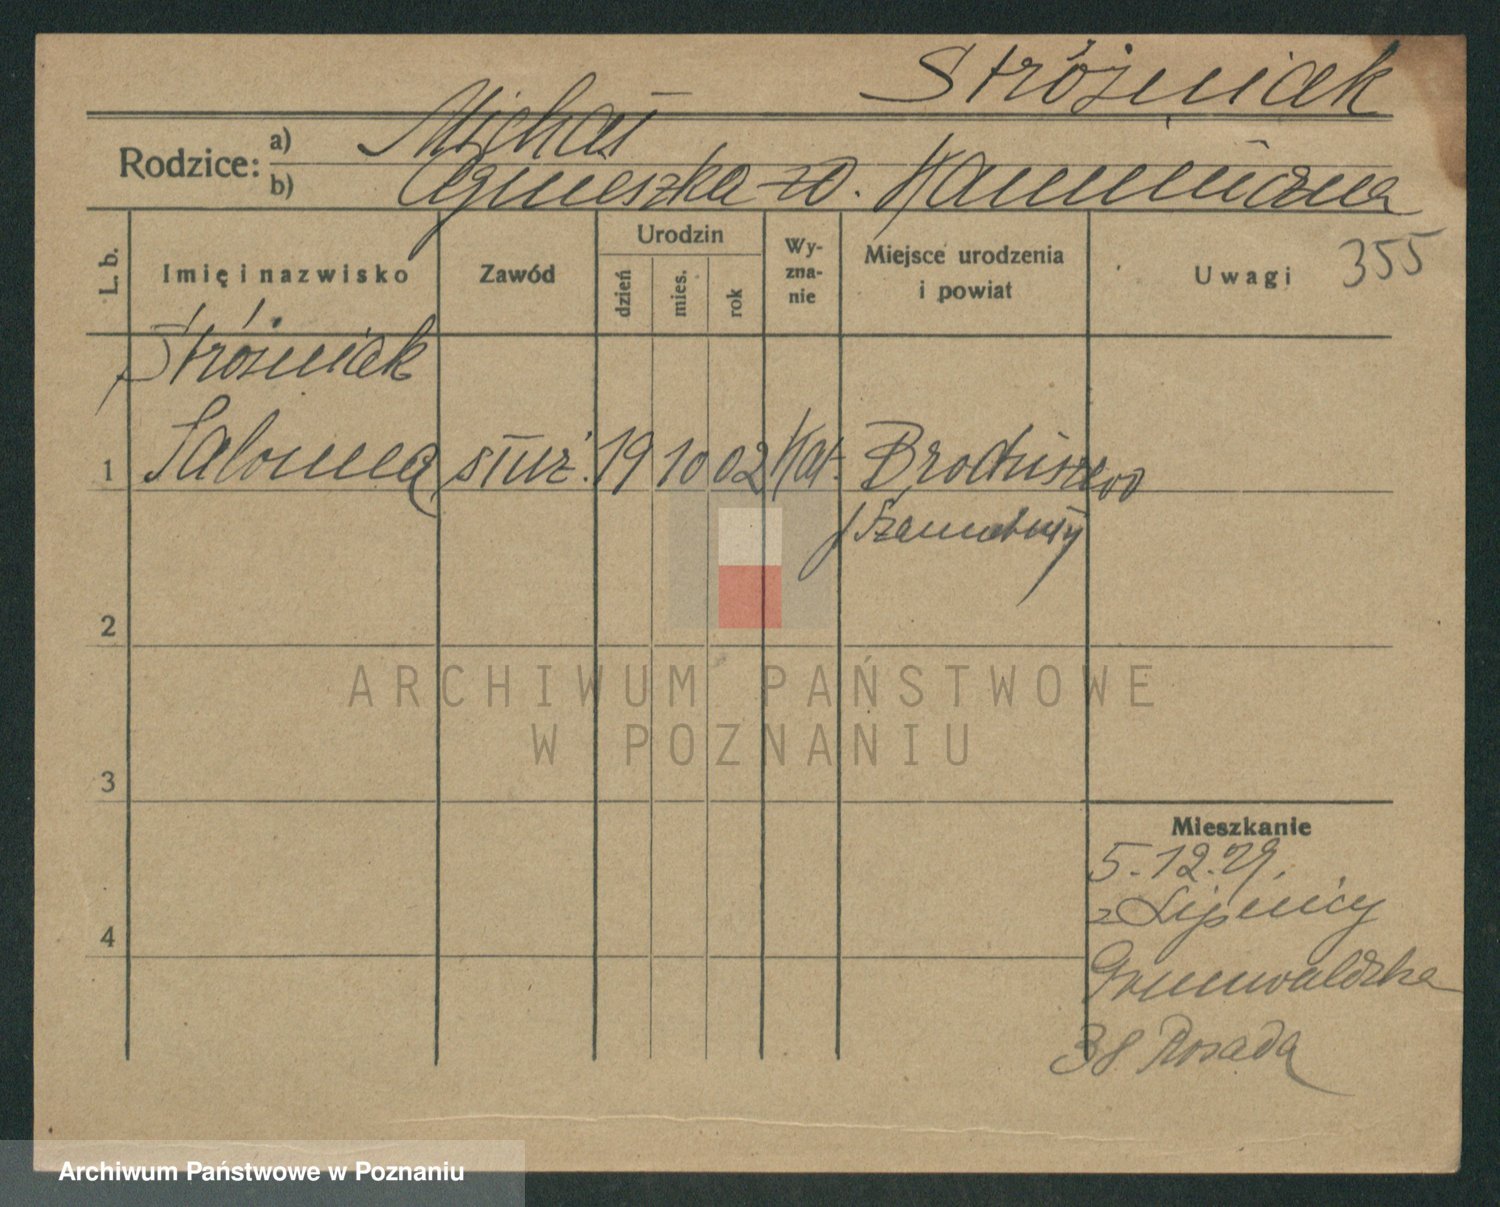 Stróżniak
Rodzice: a) Michał
b) Agnieszka zd.
L. b. Imię i nazwisko Zawód Urodzin dzień mies. rok Wy-zna-nie Miejsce urodzenia i powiat Uwagi 355
Stróżniak
1 Salomea służ. 19 10 02 Kat. Brodziszewo
Szamotuły
2
ARCHIWUM PAŃSTWOWE
W POZNANIU
3
Mieszkanie
5.12.29.
z Lipnicy
4
Grunwaldzka
38 Posada
Archiwum Państwowe w Poznaniu